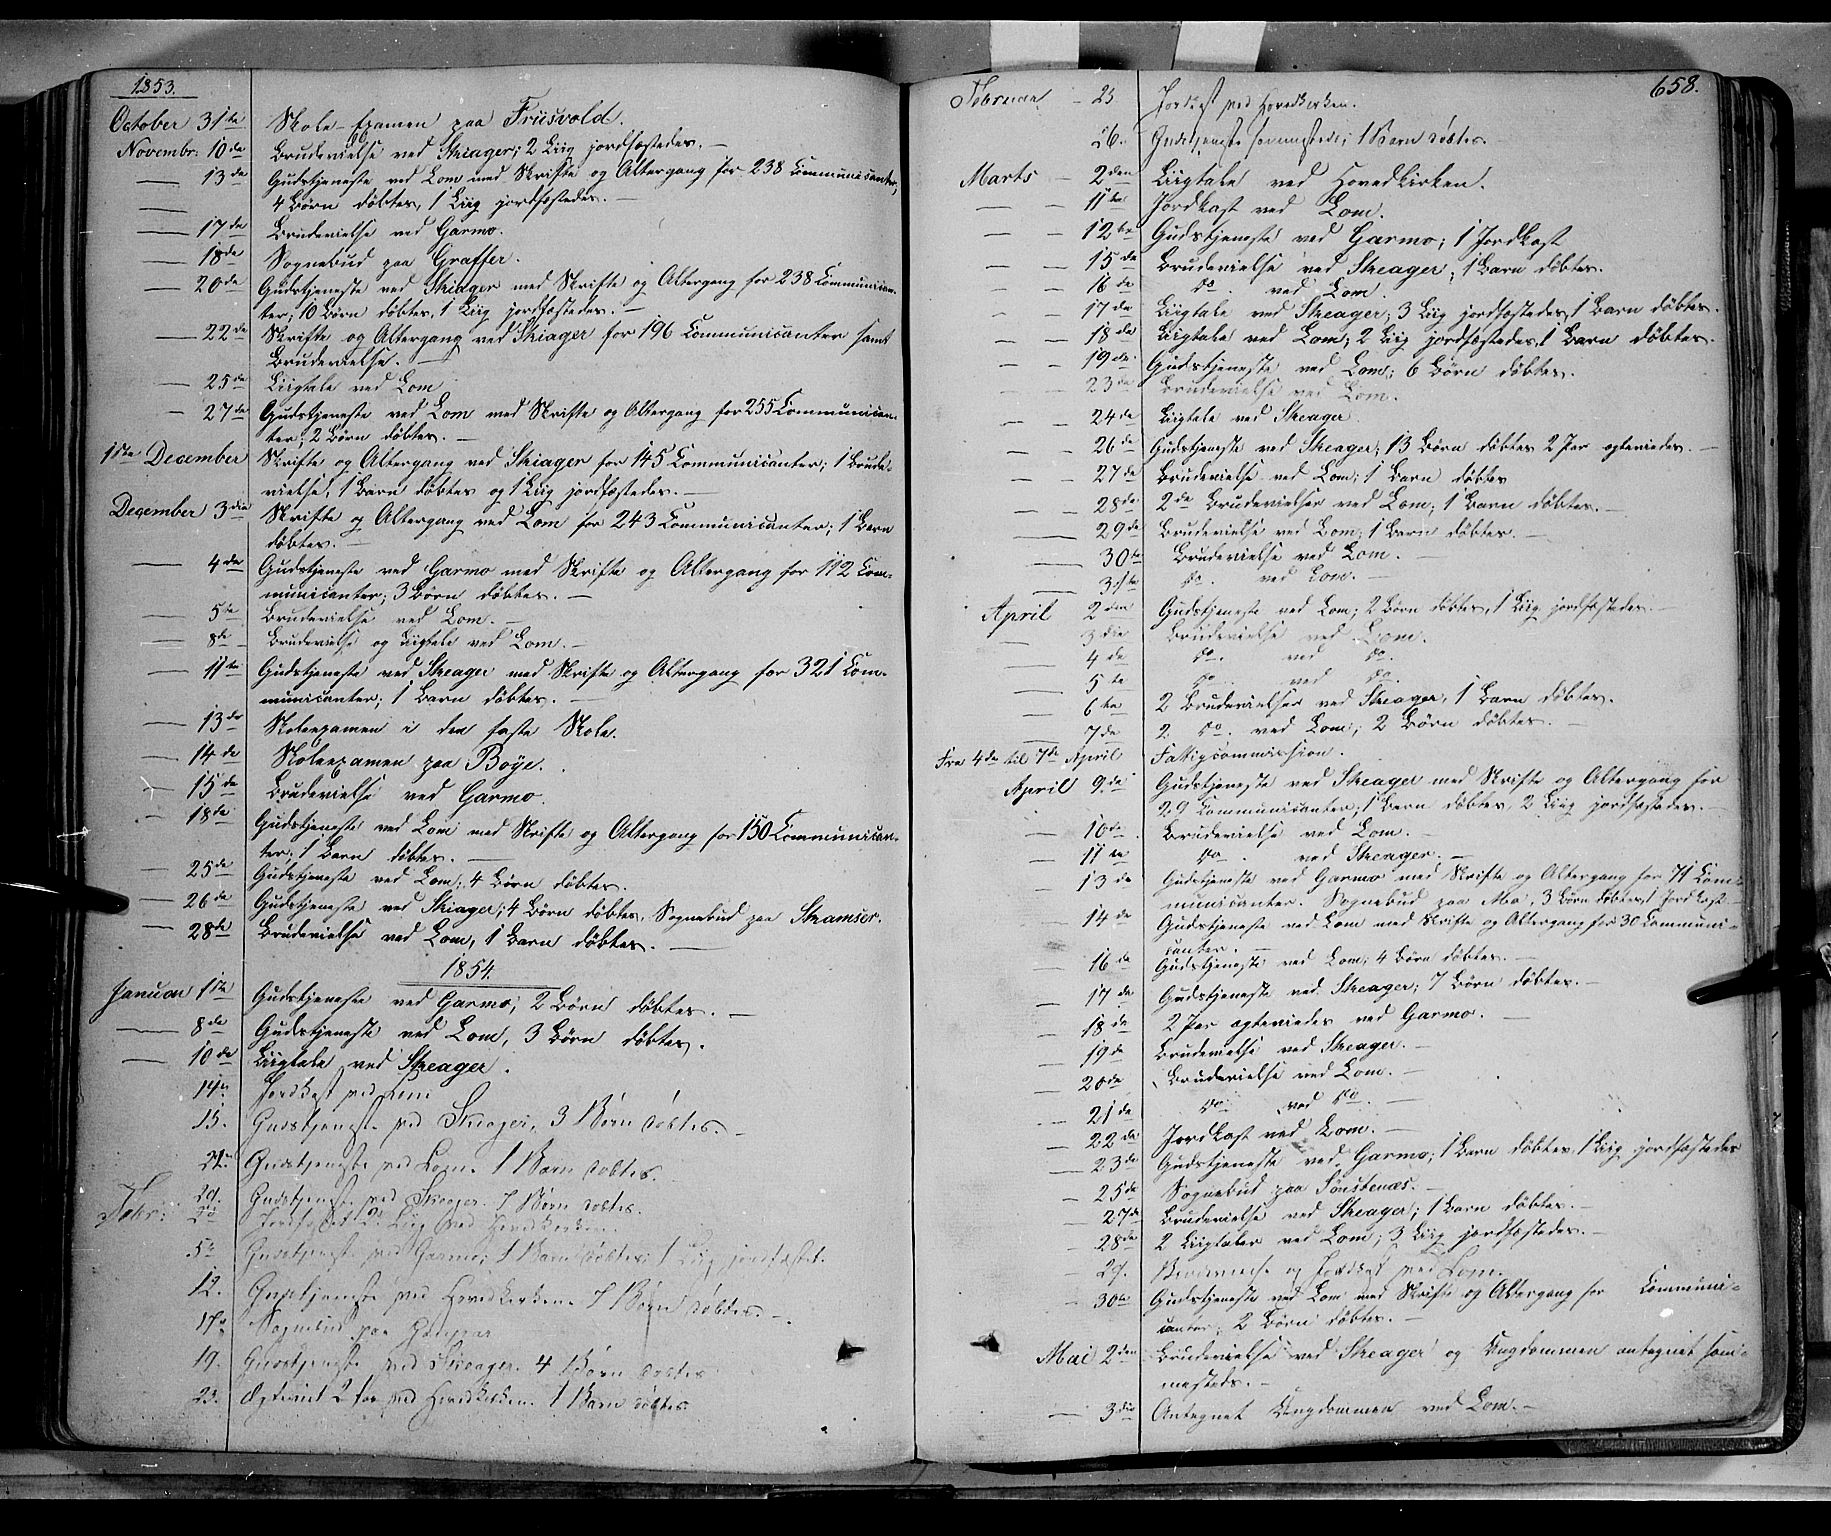 1853.
October 31te Skole-Examen paa Frusvold.
Novembr: 10de Brudevielse ved Skiager; 2 Liig jordfæstedes. —
— 13de Gudstjeneste ved Lom med Skrifte og Altergang for 238 Communicanter;
— 4 Børn døbtes, 1 Liig jordfæstedes. —
— 17de Brudevielse ved Garmo.
— 18de Sognebud paa Graffer.
— 20de Gudstjeneste ved Skiager med Skrifte og Altergang for 238 Communican-
ter; 10 Børn døbtes, 1 Liig jordfæstedes. —
— 22de Skrifte og Altergang ved Skiager for 196 Communicanter samt
Brudevielse. —
— 25de Liigtale ved Lom
— 27de Gudstjeneste ved Lom med Skrifte og Altergang for 255 Communican-
ter; 2 Børn døbtes. —
1ste December Skrifte og Altergang ved Skiager for 145 Communicanter; 1 Brude-
vielse, 1 Barn døbtes og 1 Liig jordfæstedes. —
December 3die Skrifte og Altergang ved Lom for 243 Communicanter; 1 Barn
døbtes. —
— 4de Gudstjeneste ved Garmo med Skrifte og Altergang for 112 Com-
municanter; 3 Børn døbtes. —
— 5te Brudevielse ved Lom. —
— 8de Brudevielse og Liigtale ved Lom. —
— 11te Gudstjeneste ved Skeager med Skrifte og Altergang for 321 Com-
municanter; 1 Barn døbtes. —
— 13de Skoleexamen i den faste Skole.
— 14de Skoleexamen paa Bøye.
— 15de Brudevielse ved Garmo.
— 18de Gudstjeneste ved Lom med Skrifte og Altergang for 150 Communican-
ter; 1 Barn døbtes. —
— 25de Gudstjeneste ved Lom; 4 Børn døbtes.
— 26de Gudstjeneste ved Skiager; 4 Børn døbtes. Sognebud paa Skamser.
— 28de Brudevielse ved Lom, 1 Barn døbtes. —
1854.
Januar 1ste Gudstjeneste ved Garmo; 2 Børn døbtes. —
— 8de Gudstjeneste ved Lom, 3 Børn døbtes.
— 10de Liigtale ved Skeager.
14de Jordkast ved Lom
15. Gudstjeneste ved Skeager, 3 Børn døbtes. —
Gudstjeneste ved Lom. 1 Barn døbtes.
29. Gudstjeneste ved Skeager. 7 Børn døbtes.
Febr: 2 Liig ved Hovedkirken.
5te Gudstjeneste ved Garmo; 1 Barn døbtes; 1 Liig jordfæstet.
12. Gudstjeneste ved Hovedkirken. 7 Børn døbtes. —
17de Sognebud paa
19. Gudstjeneste ved Skeager. 4 Børn døbtes
23. Ægteviet 2 Par ved Hovedkirken. 1 Barn døbtes
658.
Februar — 25 Jordkast ved Hovedkirken.
26. Gudstjeneste sammesteds; 1 Barn døbtes. —
Marts — 2den Liigtale ved Hovedkirken.
— — 11te Jordkast ved Lom.
— — 12te Gudstjeneste ved Garmo; 1 Jordkast
— — 15de Brudevielse ved Skeager; 1 Barn døbtes.
— — 16de do. ved Lom.
— — 17de Liigtale ved Skeager; 3 Liig jordfæstedes, 1 Barn døbtes.
— — 18de Liigtale ved Lom; 2 Liig jordfæstedes, 1 Barn døbtes.
— — 19de Gudstjeneste ved Lom; 6 Børn døbtes.
— — 23de Brudevielse ved Lom.
— — 24de Liigtale ved Skeager
— — 26de Gudstjeneste ved Skeager; 13 Børn døbtes 2 Par egteviedes. —
— — 27de Brudevielse ved Lom; 1 Barn døbtes
— — 28de 2de Brudevielser ved Lom; 1 Barn døbtes. —
— 29de Brudevielse ved Lom; 1 Barn døbtes. —
— 30te Brudevielse ved Lom. —
— 31te do. ved Lom. —
April 2den Gudstjeneste ved Lom; 2 Børn døbtes, 1 Liig jordfæstedes. —
— 3die Brudevielse ved Lom.
— 4de do. ved do.
— 5te do. ved do.
— 6te 2 Brudevielser ved Skeager, 1 Barn døbtes.
— 7de 2 do. ved Lom; 2 Børn døbtes. —
Fra 4de til 7de April Fattigcommission.
April 9de Gudstjeneste ved Skeager med Skrifte og Altergang for
29 Communicanter, 1 Barn døbtes, 2 Liig jordfæstedes. —
— 10de Brudevielse ved Lom. —
— 11te do. ved Skeager. —
— 13de Gudstjeneste ved Garmo med Skrifte og Altergang for 71 Com-
municanter. Sognebud paa Mo, 3 Børn døbtes, 1 Jordkast —
— 14de Gudstjeneste ved Lom med Skrifte og Altergang for 30 Communi-
canter. —
— 16de Gudstjeneste ved Lom; 4 Børn døbtes. —
— 17de Gudstjeneste ved Skeager; 7 Børn døbtes. —
— 18de 2 Par egteviedes ved Garmo. —
— 19de Brudevielse ved Skeager. —
— 20de Brudevielse ved Lom. —
— 21de do. ved do. —
— 22de Jordkast ved Lom. —
— 23de Gudstjeneste ved Garmo; 1 Barn døbtes, 1 Liig jordfæstedes
— 25de Sognebud paa Sønstenæs. —
— 27de Brudevielse ved Skeager; 1 Barn døbtes. —
— 28de 2 Liigtaler ved Lom; 3 Liig jordfæstedes. —
— 29. Brudevielse og Jordkast ved Lom.
— 30te Gudstjeneste ved Lom med Skrifte og Altergang for Communi-
canter; 2 Børn døbtes. —
Mai 2den Brudevielse ved Skeager og Ungdommen antegnet sam-
mesteds. —
— 3die Antegnet Ungdommen ved Lom. —